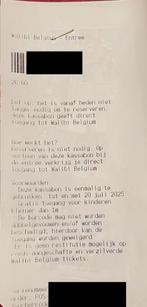 Walibi Belgium Entree
26.60
Let op: het is vanaf heden niet
langer nodig om te reserveren,
deze kassabon geeft direct
toegang tot Walibi Belgium
Hoe werkt het?
Reserveren is niet nodig. Op
vertoon van deze kassabon bij
de entree verkrijg je direct
toegang tot Walibi Belgium
Voorwaarden
Deze kassabon is eenmalig te
gebruiken, tot en met 20 juli 2025
Gratis toegang voor kinderen
kleiner dan 1m
De barcode mag niet worden
dubbelgevouwen en/of worden
beschadigd, hierdoor kan de
toegang worden geweigerd
Er is geen restitutie mogelijk op
reeds aangeschafte en verzilverde
Walibi Belgium tickets.
POS